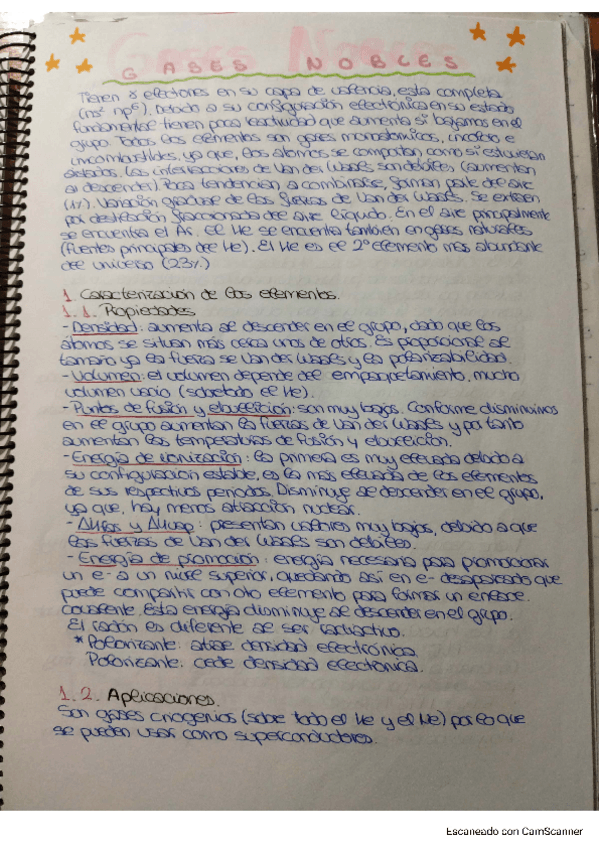 GASES NOBLES
Tienen 8 electrones en su capa de valencia, esta completa
(ns² np⁶). Debido a su configuración electrónica en su estado
fundamental tienen poca reactividad que aumenta si bajamos en el
grupo. Todos los elementos son gases monoatómicos, incoloro e
incombustibles, ya que, los átomos se comportan como si estuvieran
aislados. Las interacciones de Van der Waals son débiles (aumentan
al descender). Poca tendencia a combinarse, forman parte del aire
(1%). Variación gradual de las fuerzas de Van der Waals. Se extraen
por destilación fraccionada del aire líquido. En el aire principalmente
se encuentra el Ar. el He se encuentra también en gases naturales
(fuentes principales del He). El He es el 2º elemento más abundante
del universo (23%)
1. Caracterización de los elementos.
1.1. Propiedades
-Densidad: aumenta al descender en el grupo, dado que los
átomos se situan más cerca unos de otros. Es proporcional al
tamaño ya la fuerza se Van der Waals y la polarizabilidad.
-Volumen: el volumen depende del empaquetamiento, mucho
volumen vacio (sobretodo el He).
-Puntos de fusión y ebullición: son muy bajos. Conforme disminuimos
en el grupo aumentan la fuerzas de Van der Waals y por tanto
aumentan las temperaturas de fusión y ebullición.
-Energía de ionización: la primera es muy elevada debido a
su configuración estable, es la más elevada de los elementos
de sus respectivos periodos. Disminuye al descender en el grupo,
ya que, hay menos atracción nuclear.
-ΔHfus y ΔHvap: presentan valores muy bajos, debido a que
las fuerzas de Van der Waals son débiles.
-Energía de promoción: energía necesaria para promocionar
un e- a un nivel superior, quedando así en e- desapareado que
puede compartir con otro elemento para formar un enlace.
covalente. Esta energía disminuye al descender en el grupo.
El radón es diferente al ser radiactivo.
*Polarizante: atrae densidad electrónica.
Polarizante: cede densidad electrónica.
1.2. Aplicaciones.
Son gases criogenios (sobre todo el He y el Ne) por lo que
se pueden usar como superconductores.
Escaneado con CamScanner